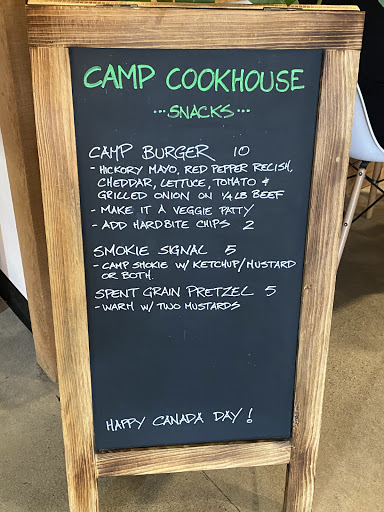 CAMP COOKHOUSE
...SNACKS...
CAMP BURGER 10
- HICKORY MAYO, RED PEPPER RELISH,
CHEDDAR, LETTUCE, TOMATO &
GRILLED ONION ON 1/4 LB BEEF
- MAKE IT A VEGGIE PATTY
- ADD HARDBITE CHIPS 2
SMOKIE SIGNAL 5
- CAMP SMOKIE W/ KETCHUP/MUSTARD
OR BOTH.
SPENT GRAIN PRETZEL 5
- WARM W/ TWO MUSTARDS
HAPPY CANADA DAY!